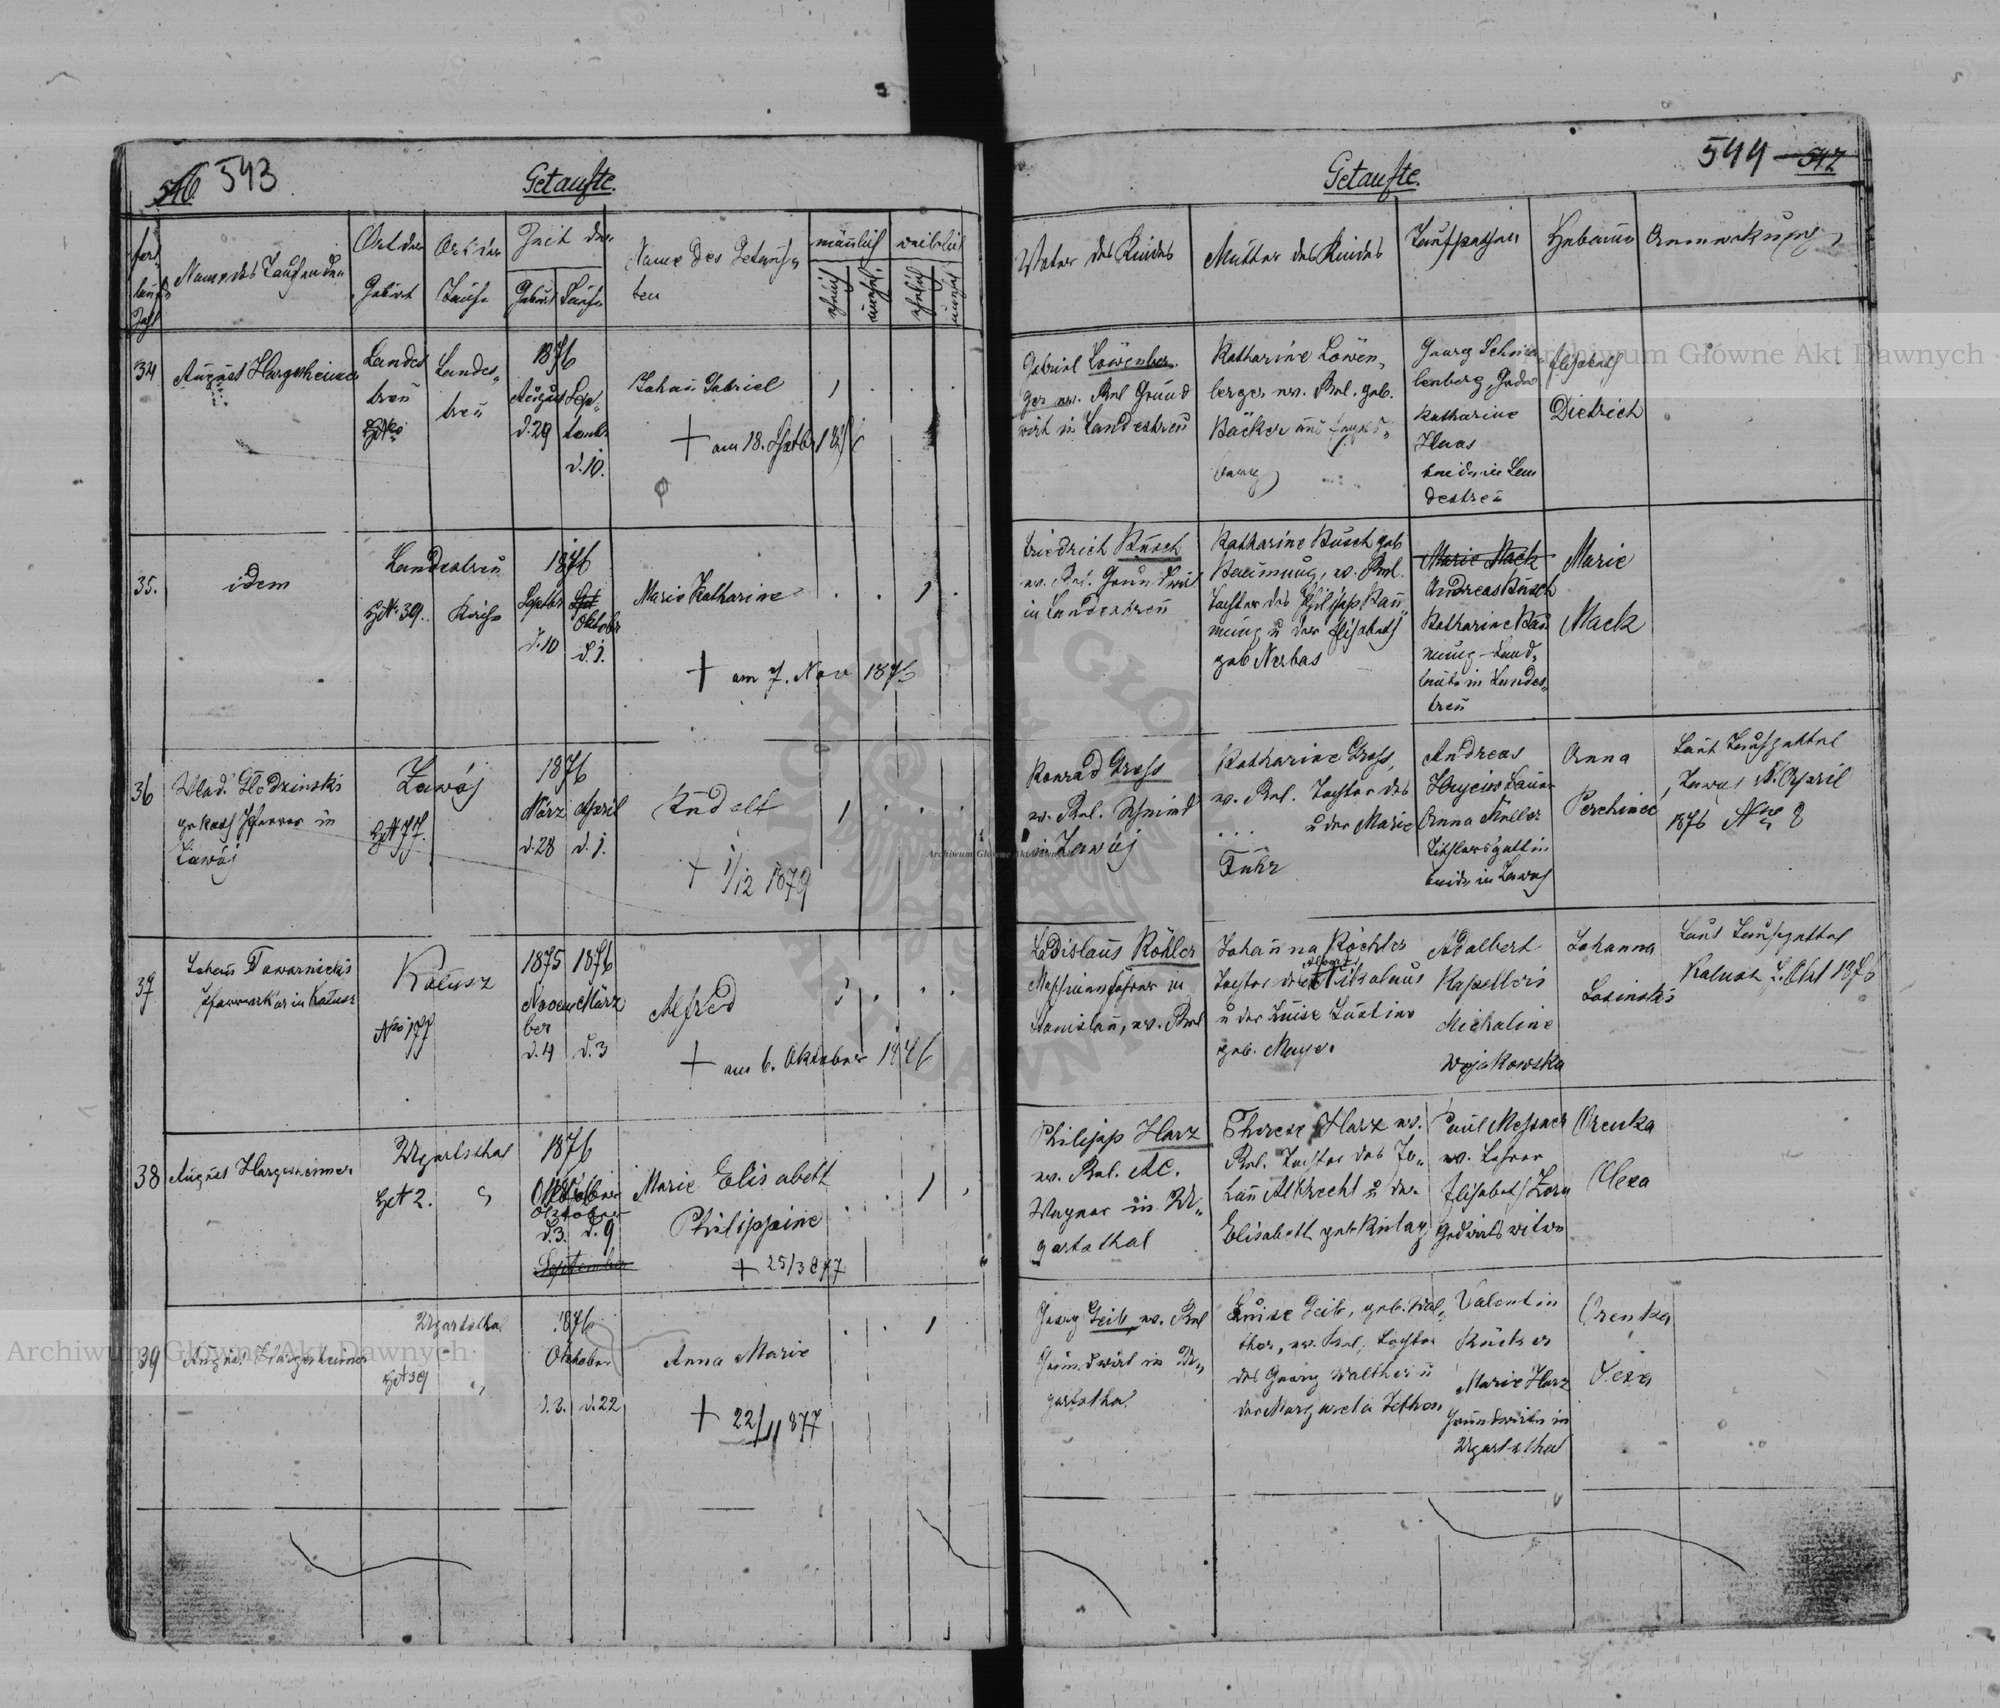 546 543
Getaufte.
Name des Taufenden
Ort der
Geburt
Ort der
Taufe
Zeit der
Geburt
Taufe
Name des Getauf-
ten
männlich
weiblich
34
August Hargesheimer
Landes
treu
Landes-
treu
1876
August
d. 29
Septembr
d. 10.
Johann Gabriel
† am 18. Septbr 1876
35.
idem
Landestreu
Hs№ 39.
Kirche
1876
Septbr
d. 10
Oktober
d. 1.
Marie Katharine
† am 7. Nov 1876
36
Wlad. Głodzinski
gr. kath. Pfarrer in
Zawój
Zawój
1876
März
d. 28
April
d. 1.
Rudolf
† 1/12 1879
37
Johann Tawarnicki
Pfarrvikar in Kałusz
Kałusz
№ 177
1875
November
d. 4
1876
März
d. 3
Alfred
† am 6. Oktober 1876
38
August Hargesheimer
Ugartsthal
Hs№ 2.
1876
Oktober
d. 3.
d. 9
September
Marie Elisabeth
Philippine
† 25/3 877
39
August Hargesheimer
Ugartsthal
Hs№ 39
1876
Oktober
d. 3.
d. 22
Anna Marie
† 22/11 877
544 542
Getaufte.
Vater des Kindes
Mutter des Kindes
Taufpathen
Hebamme
Anmerkung
Gabriel Löwenber-
ger ev. Rel Grund
wirt in Landestreu
Katharine Löwen-
berger ev. Rel. geb.
Bäcker
Georg
lenberg
Katharine
Haas
beide in Lan
destreu
Elisabeth
Dietrich
Friedrich Busch
ev. Rel. Grundwirt
in Landestreu
Katharine Busch geb
Baumung, ev. Rel.
Tochter des Philipp Bau-
mung u der Elisabeth
geb Nerbas
Marie Mack
Andreas Busch
Katharine Bau
mung - Land-
leute in Landes-
treu
Marie
Mack
Konrad Gross
ev. Rel. Schmied
in Zawój
Katharine Gross,
ev. Rel. Tochter des
... u der Marie
Fuhr
Andreas
Bauer
Anna Müller
Tischlersgattin
beide in Zawoj
Anna
Laut Taufzettel
Zawoj April
1876 № 8
Ladislaus Köhler
Maschinenführer in
Stanislau, ev. Rel
Johanna
Tochter des Nikolaus
u der Luise Justine
geb. Meyer
Adalbert
Michaline
Wojakowska
Johanna
Losinski
Laut Taufzettel
Kalusz Okt 1876
Philipp Harz
ev. Rel. AC.
Wagner in U-
gartsthal
Therese Harz ev.
Rel. Tochter des Jo-
hann Albrecht u der
Elisabeth geb
Paul Messner
ev. Lehrer
Elisabeth Zorn
Grdwirts witwe
Orenka
Olexa
Georg Geib, ev. Rel
Grundwirt in U-
gartsthal
Luise Geib, geb. Wal-
ther, ev. Rel, Tochter
des Georg Walther u
der Margareta
Valentin
Rücker
Marie Harz
Grundwirte in
Ugartsthal
Orenka
Olexa
Archiwum Główne Akt Dawnych
Archiwum Główne Akt Dawnych
Archiwum Główne Akt Dawnych